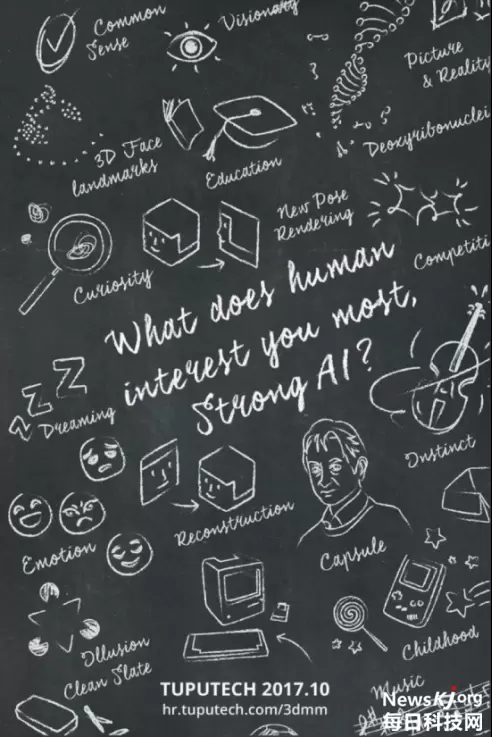 Common
Sense
Visionary
Picture
& Reality
3D Face
landmarks
Education
Deoxyribonuclei
New Pose
Rendering
Curiosity
Competiti
What does human
interest you most,
Strong AI?
Dreaming
Instinct
Reconstruction
Emotion
Capsule
Illusion
Childhood
Clean Slate
Music
TUPUTECH 2017.10
hr.tuputech.com/3dmm
NewsKj.org
每日科技网